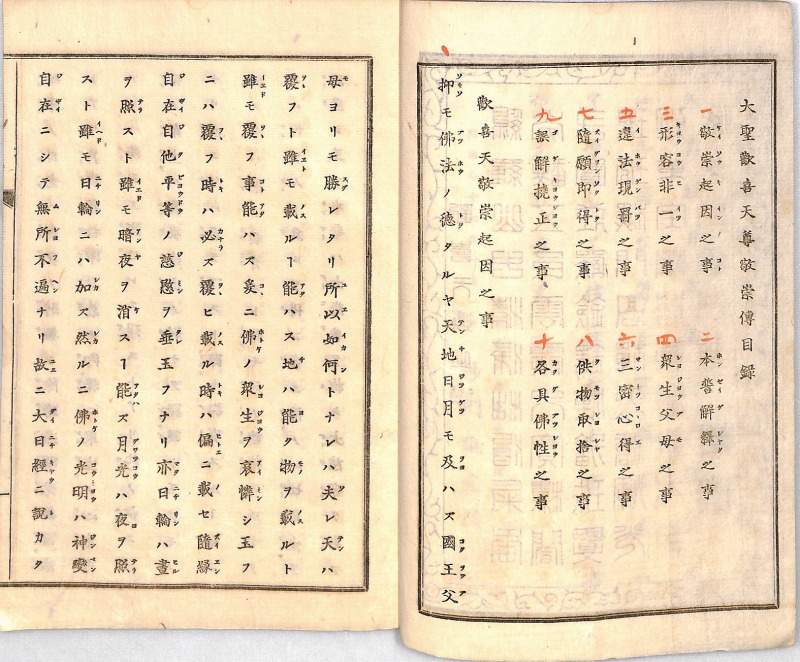 大聖歡喜天尊敬崇傳目録
一 敬崇起因之事 二 本誓解釋之事
三 形容非一之事 四 衆生父母之事
五 違法現罰之事 六 三密心得之事
七 隨願即得之事 八 供物取捨之事
九 誤解撓正之事 十 各具佛性之事
歡喜天敬崇起因之事
抑モ佛法ノ德タルヤ天地日月モ及ハス國王父
母ヨリモ勝レタリ所以如何トナレハ夫レ天ハ
覆フト雖モ載ルヿ能ハス地ハ能ク物ヲ載ルト
雖モ覆フ事能ハス爰ニ佛ノ衆生ヲ哀憐シ玉フ
ニハ覆フ時ハ必ズ覆ヒ載ル時ハ偏ニ載セ隨緣
自在自他平等ノ慈愍ヲ垂玉フナリ亦日輪ハ晝
ヲ照スト雖モ暗夜ヲ消スヿ能ズ月光ハ夜ヲ照
スト雖モ日輪ニハ加ズ然ルニ佛ノ光明ハ神變
自在ニシテ無所不遍ナリ故ニ大日經ニ説カク